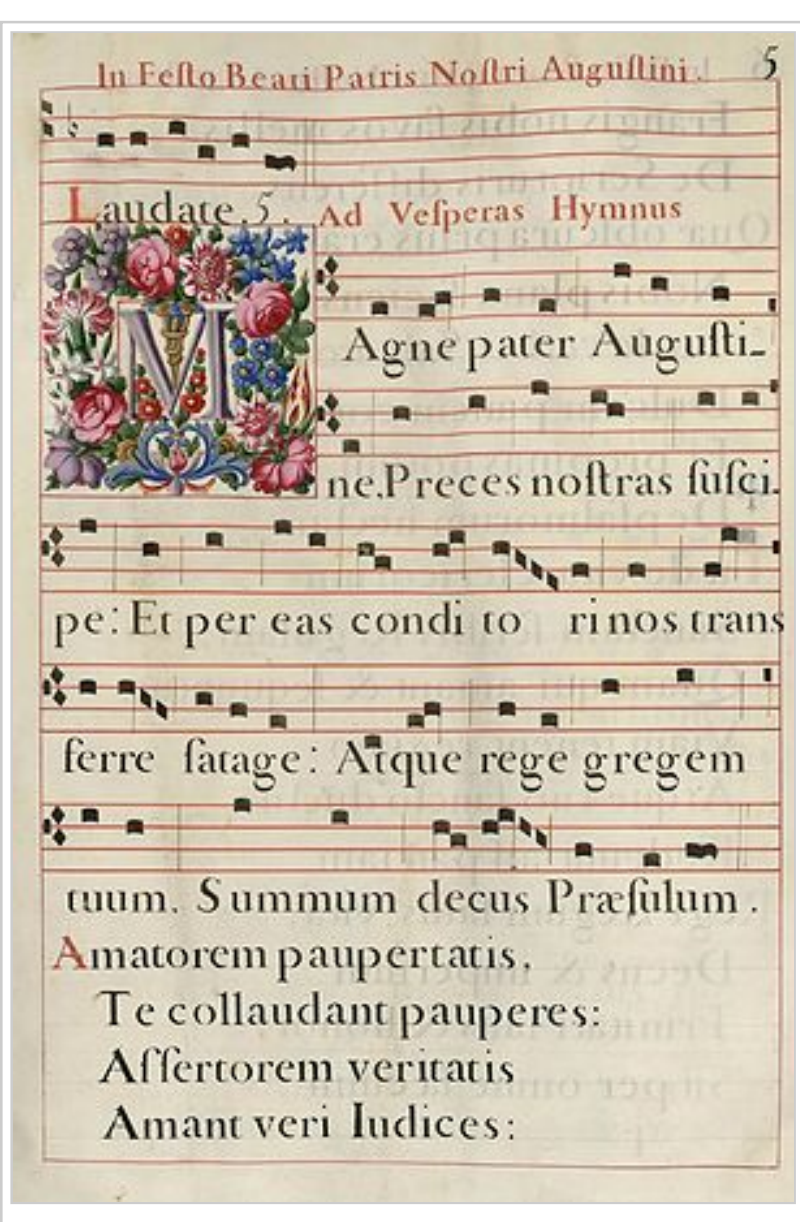 In Feſto Beati Patris Noſtri Auguſtini.
5
Laudate. 5. Ad Veſperas Hymnus
MAgne pater Auguſti-
ne, Preces noſtras ſuſci-
pe: Et per eas condi to ri nos trans
ferre ſatage: Atque rege gregem
tuum, Summum decus Præſulum.
Amatorem paupertatis,
Te collaudant pauperes:
Aſſertorem veritatis
Amant veri Iudices: